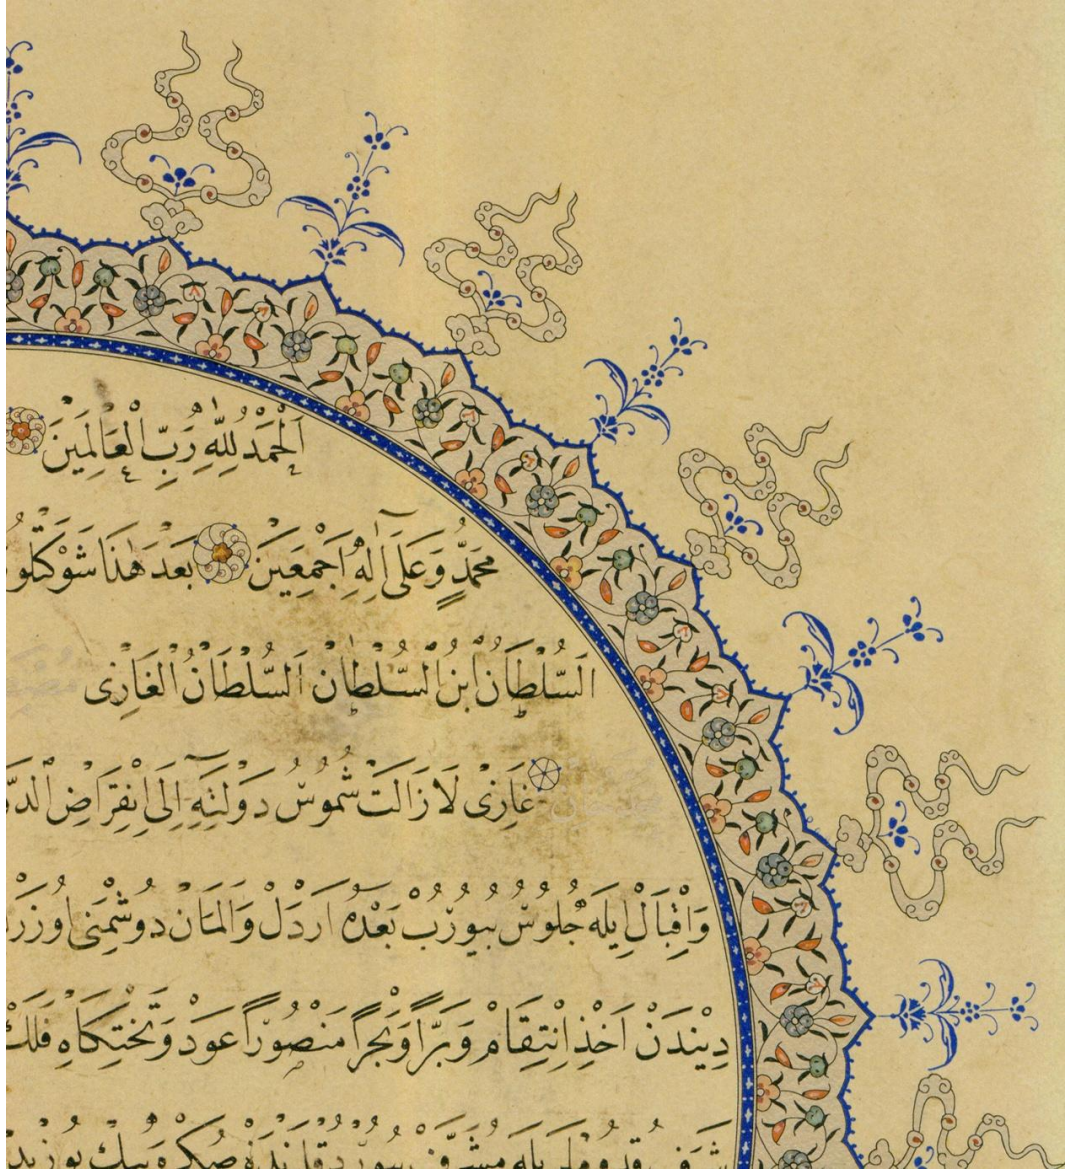 اَلْحَمْدُ لِلّٰهِ رَبِّ الْعَالَمِيْنَ
مُحَمَّدٍ وَعَلَى اٰلِهِ اَجْمَعِيْنَ بَعْدَ هٰذَا شَوْكَتْلُو
اَلسُّلْطَانُ ابْنُ السُّلْطَانْ اَلسُّلْطَانُ الْغَازِى
غَازِىْ لَا زَالَتْ شُمُوسُ دَوْلَتِهِ اِلَى اِنْقِرَاضِ
وَاِقْبَالْ اِيلَه جُلُوسْ بيورُبْ بَعْدَهُ اَرْدَلْ وَالَمَانْ دُوشْمَنِى
دِيْنِدَنْ اَخْذِ اِنْتِقَامْ وَبَرًّا وَبَحْرًا مَنْصُورًا عَوَدْ وَتَخْتِكَاهِ